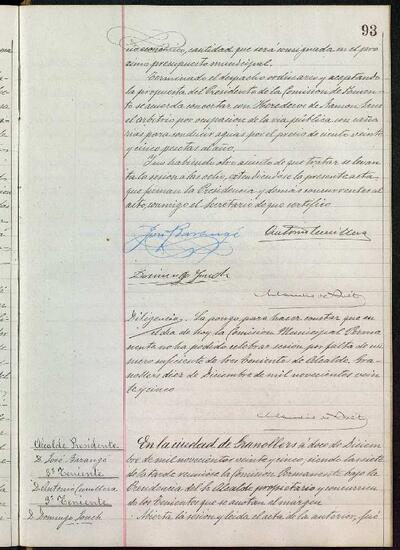 93
nio económico, cantidad que será consignada en el pró
ximo presupuesto municipal.
Terminado el despacho ordinario y aceptando
la propuesta del Presidente de la Comisión de Fomen
to se acuerda concertar con Herederos de Ramon
el arbitrio por ocupación de la vía pública con cañe
rías para conducir aguas por el precio de ciento veinte
y cinco pesetas al año.
Y no habiendo otro asunto de que tratar se levan
ta la sesión a las ocho, extendiéndose la presente acta
que firman la Presidencia y demás concurrentes al
acto, conmigo el Secretario de que certifico
José Barangé
Antonio Cumellera
Domingo Jonch
Diligencia. La pongo para hacer constar que en
el día de hoy la Comisión Municipal Perma
nente no ha podido celebrar sesión por falta de nú
mero suficiente de los Tenientes de Alcalde. Gra
nollers diez de Diciembre de mil novecientos vein
te y cinco
Alcalde Presidente
D. José Barangé
Teniente
D. Antonio Cumellera
Teniente
D. Domingo Jonch
En la ciudad de Granollers a doce de Diciem
bre de mil novecientos veinte y cinco, siendo las siete
de la tarde reunióse la Comisión Permanente bajo la
Presidencia del Sr. Alcalde propietario y concurrencia
de los Tenientes que se anotan al margen
Abierta la sesión y leída el acta de la anterior, fué